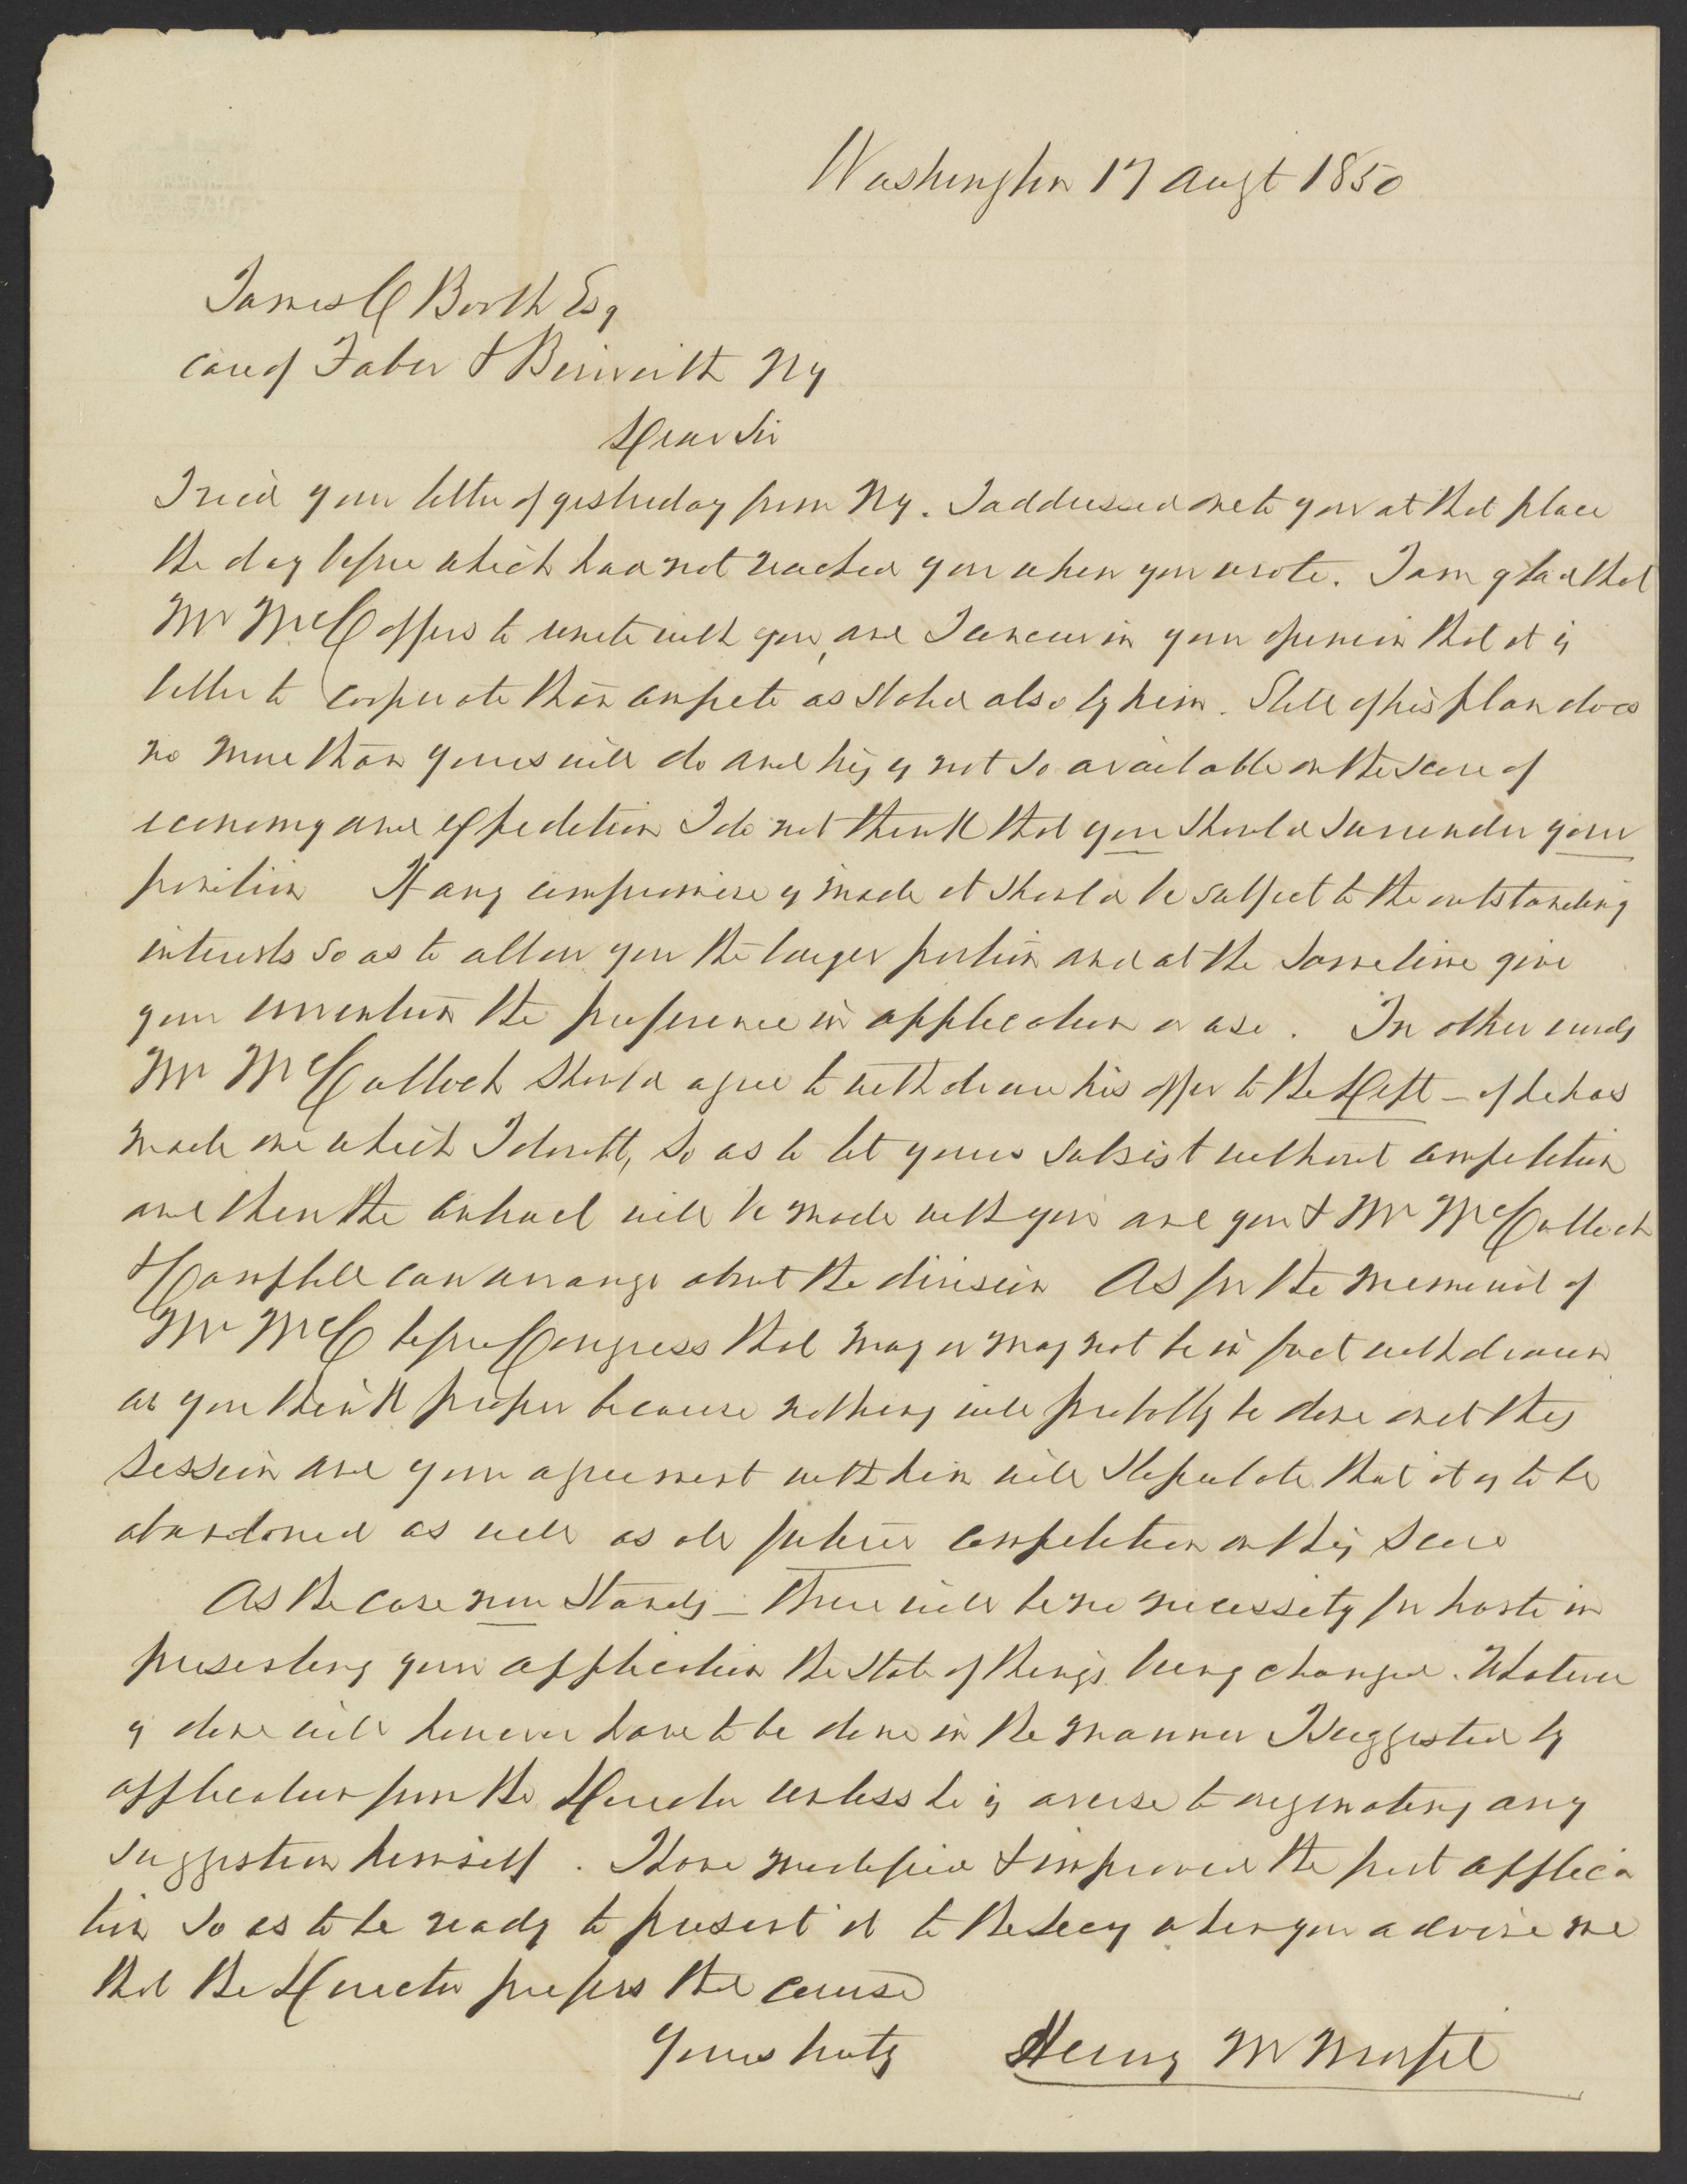 Washington 17 Augt 1850
James C Booth Esq
care of Faber & Bierwirth NY
Dear Sir
I rec'd your letter of yesterday from NY. I addressed one to you at that place
the day before which had not reached you when you wrote. I am glad that
Mr McC offers to unite with you, and I concur in your opinion that it is
better to cooperate than compete as stated also by him. Still if his plan does
no more than yours will do and his is not so available on the score of
economy and expedition I do not think that you should surrender your
position If any compromise is made it should be subject to the outstanding
interests so as to allow you the larger portion and at the same time give
your invention the preference in application or use. In other words
Mr McCulloch should agree to withdraw his offer to the Dept - if he has
made one which I doubt, so as to let yours subsist without competition
and then the contract will be made with you and you & Mr McCulloch
& Campbell can arrange about the division As for the memorial of
Mr McC before Congress that may or may not be in fact withdrawn
as you think proper because nothing will probably be done on it this
session and your agreement with him will stipulate that it is to be
abandoned as well as all future competition on this score
As the case now stands - there will be no necessity for haste in
presenting your application the state of things being changed. Whatever
is done will however have to be done in the manner I suggested by
application from the Director unless he is averse to originating any
suggestion himself. I have modified & improved the first applica
tion so as to be ready to present it to the Secy when you advise me
that the Director prefers that course
Yours truly Henry M Morfit